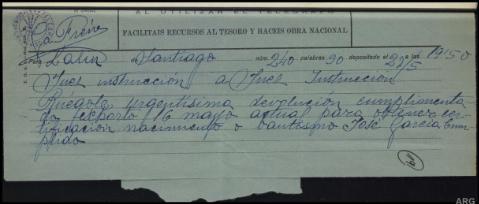 AL UTILIZAR EL TELEGRAFO
FACILITAIS RECURSOS AL TESORO Y HACEIS OBRA NACIONAL
Lalin Santiago núm. 240 palabras 20 depositado el 22/5 a las 19'50
Juez instrucción a Juez Instrucción
Ruegole urgentisima devolución cumplimenta
do exhorto 16 mayo actual para obtener cer
tificación nacimiento o bautismo José García
ARG